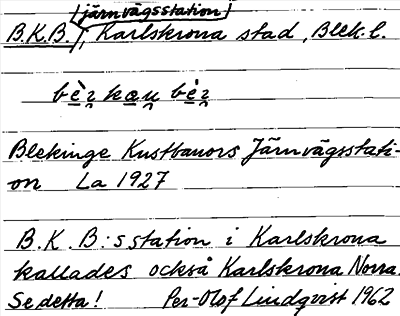 järnvägsstation
B.K.B., Karlskrona stad, Blek. l.
Blekinge Kustbanors Järnvägsstati-
on La 1927
B.K.B:s station i Karlskrona
kallades också Karlskrona Norra.
Se detta! Per-Olof Lindqvist 1962